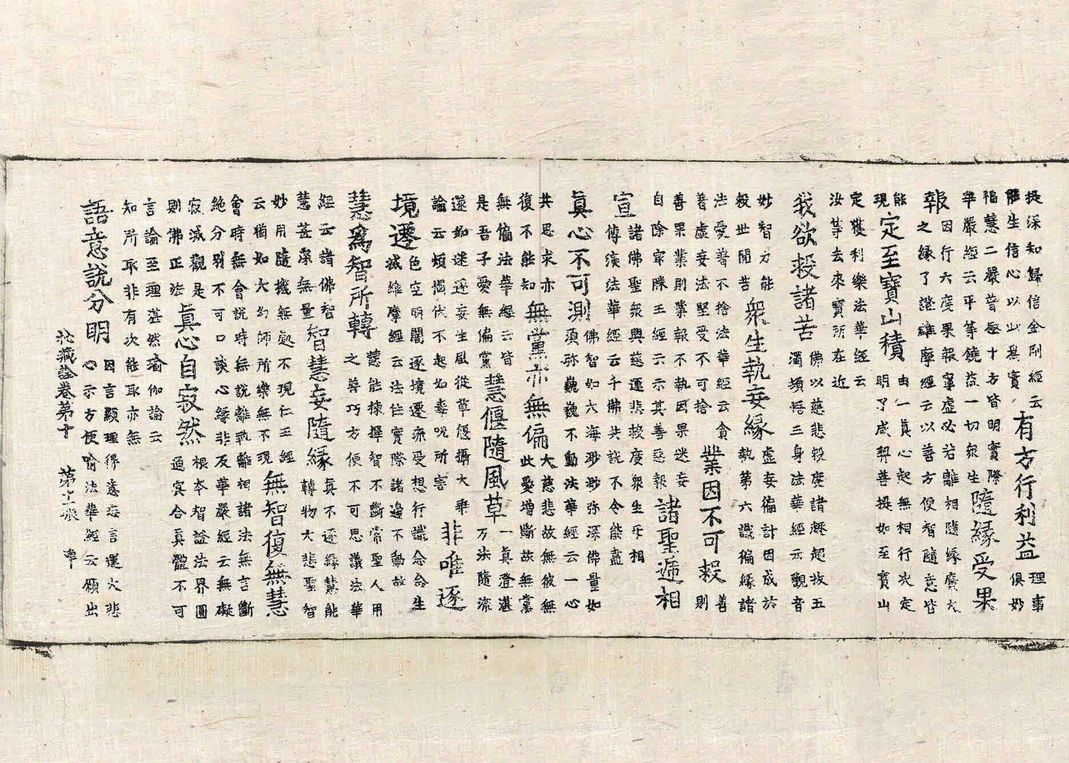 提深知歸信金剛經云
能生信心以此爲實
有方行利益
理事
俱妙
福慧二嚴普每十方皆明實際
華嚴經云平等饒益一切衆生
隨緣受果
報
因行六度果報寧虛必若離相隨緣廣大
之緣了證維摩經云以善方便智隨意皆
能
現
定至寶山積
由一真心起無相行決定
明了成菩提如至寶山
定獲利樂法華經云
汝等去來寶所在近
我欲救諸苦
佛以慈悲救度諸趣超拔五
濁頓悟三身法華經云觀音
妙智力能
救世間苦
衆生執妄緣
虛妄徧計因成於
執第六識徧緣諸
法受著不捨法華經云貪
著虛妄法堅受不可捨
業因不可救
善
則
善果業則業報不執因果迷妄
自除寶勝王經云示其善惡報
諸聖遞相
宣
諸佛聖衆興慈運悲救度衆生乐相
傳演法華經云千佛共說不令能盡
真心不可測
佛智如大海渺渺弥深佛量如
須弥巍巍不動法華經云一心
共思求亦
復不能知
無黨亦無偏
大慈悲故無彼無
此愛增斷故無黨
無偏法華經云皆
是吾子愛無偏黨
慧偃隨風草
一真澄湛
万法隨流
還如迷逐妄生風從草偃攝大乗
論云煩惱伏不起如毒呪所害
非唯逐
境遷
色空明闇逐境還流受想行識念念生
滅維摩經云法住實際諸邊不動故
慧爲智所轉
慧能揀擇智不斷常聖人用
之善巧方便不可思議法華
經云諸佛智
慧甚深無量
智慧妄隨緣
真不逐緣慧能
轉物大悲聖智
妙用隨機無處不現仁王經
云猶如大幻師所樂無不現
無智復無慧
會時無會說時無說離教離相諸法無言斷
絶分別不可口談心等非及華嚴經云無礙
寂滅觀是
則佛正法
真心自寂然
根本智證法界圓
通冥合真體不可
言論至理湛然瑜伽論云
知所取非有次能取亦無
語意說分明
因言顯理得意忘言運大悲
心示方便喻法華經云願出
祕藏詮卷第十
第十張